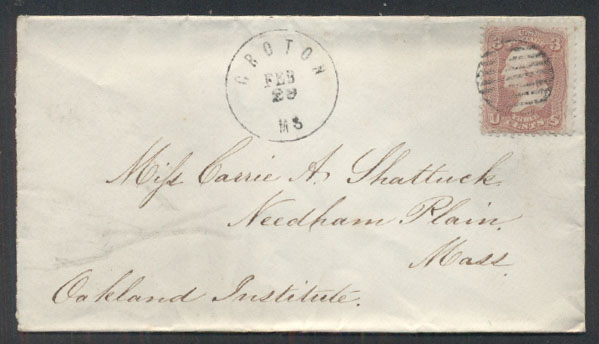 GROTON
FEB
29
MS
3 3
U THREE S
CENTS
Miss Carrie A. Shattuck
Needham Plain.
Mass.
Oakland Institute.